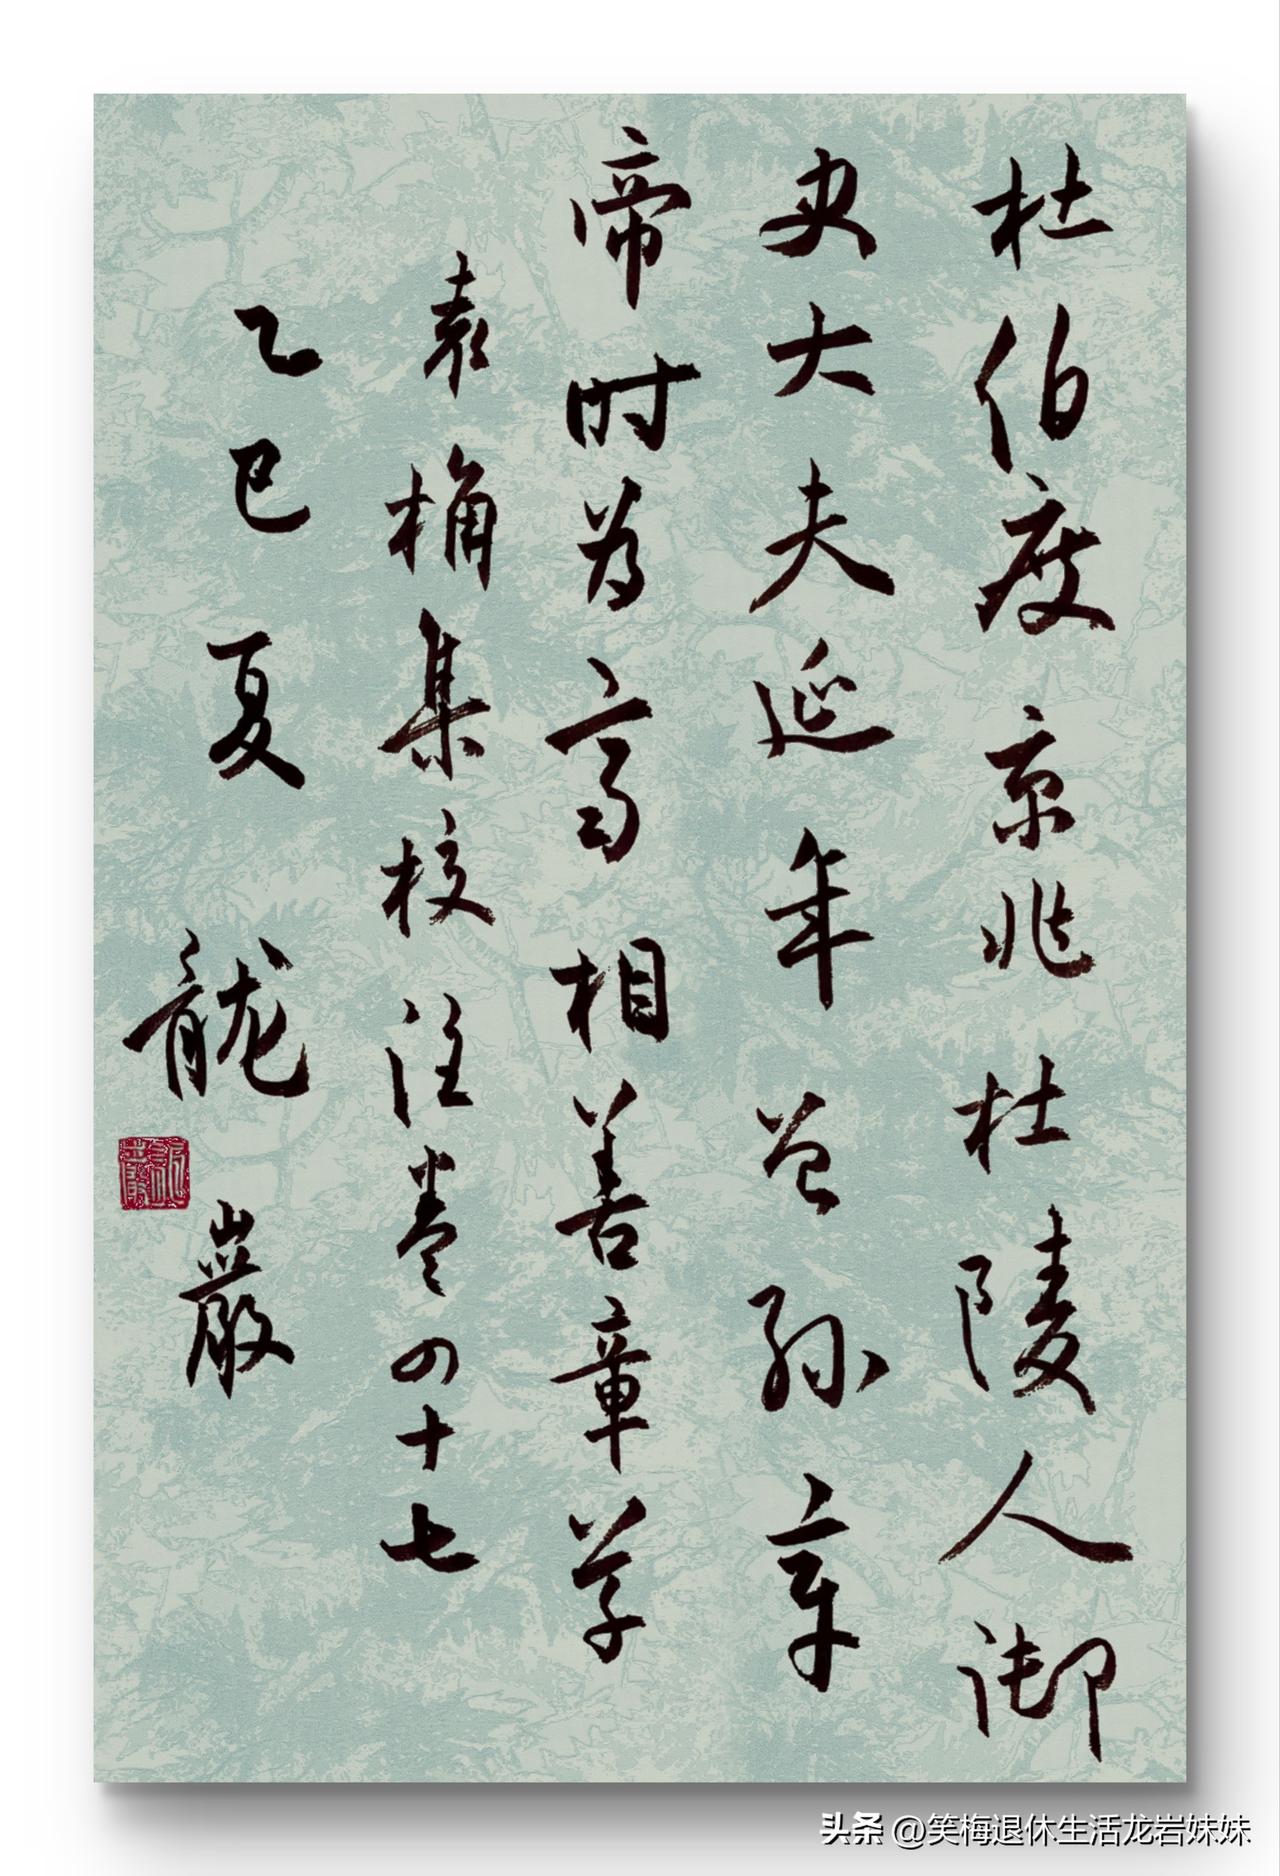 杜伯度京兆杜陵人御
史大夫延年曾孙章
帝时为齐相善章草
袁桷集校注卷四十七
乙巳夏
龍巖
头条 @笑梅退休生活龙岩妹妹